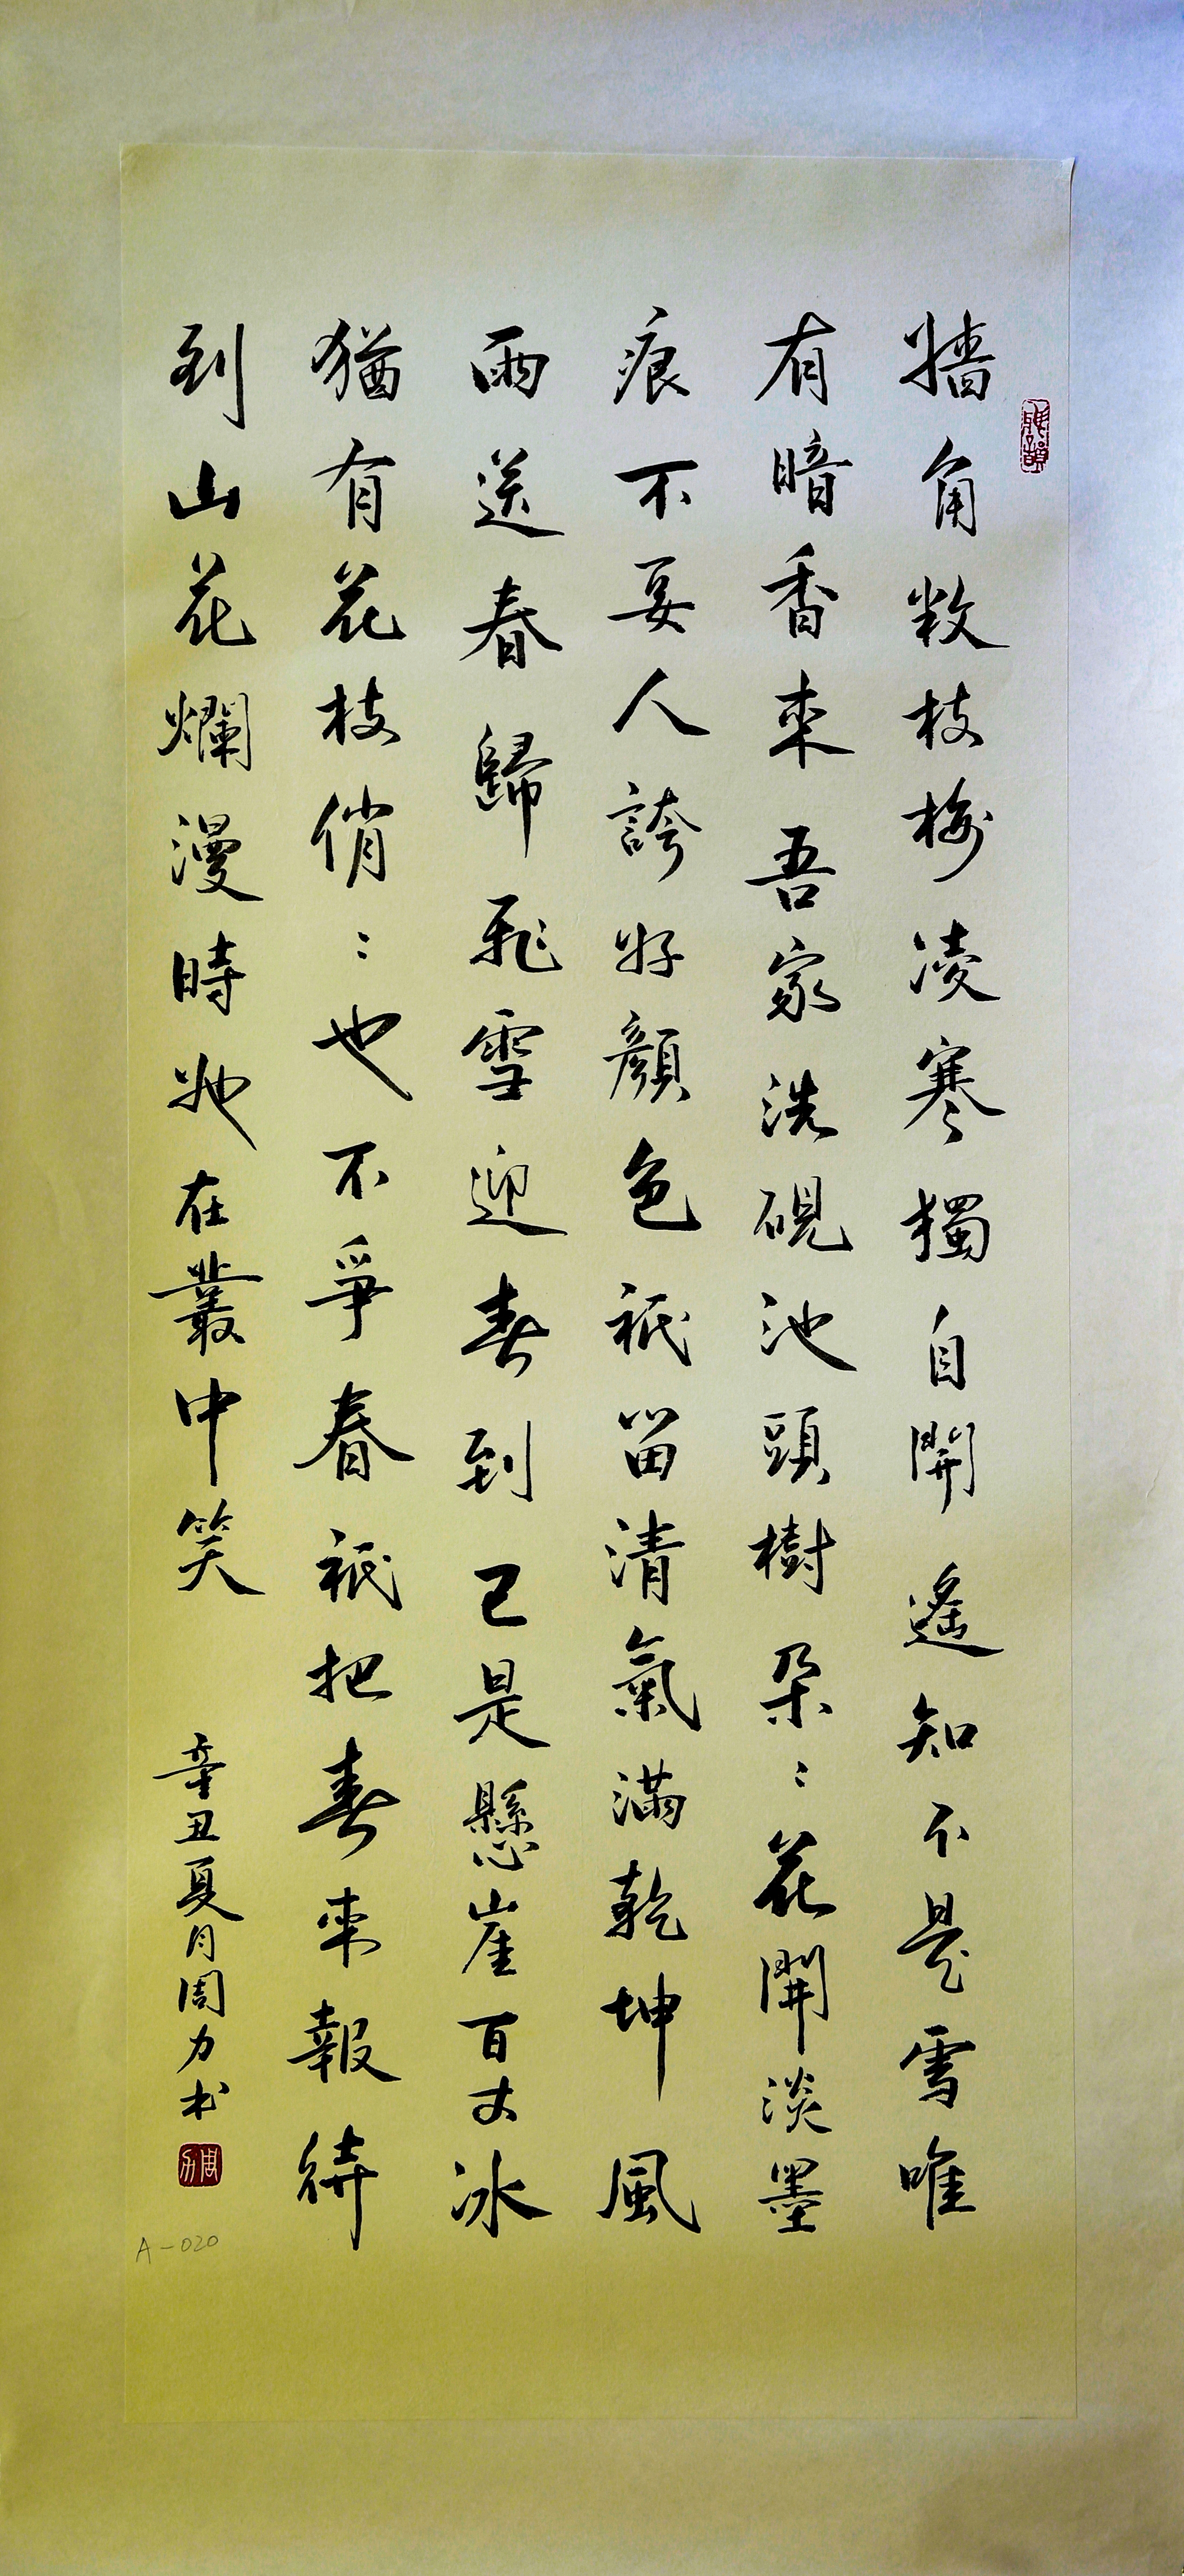 牆角數枝梅凌寒獨自開遙知不是雪唯
有暗香來吾家洗硯池頭樹朵〻花開淡墨
痕不要人誇好顏色祇留清氣滿乾坤風
雨送春歸飛雪迎春到已是懸崖百丈冰
猶有花枝俏〻也不爭春祇把春來報待
到山花爛漫時她在叢中笑
辛丑夏月周力书
周力
A-020